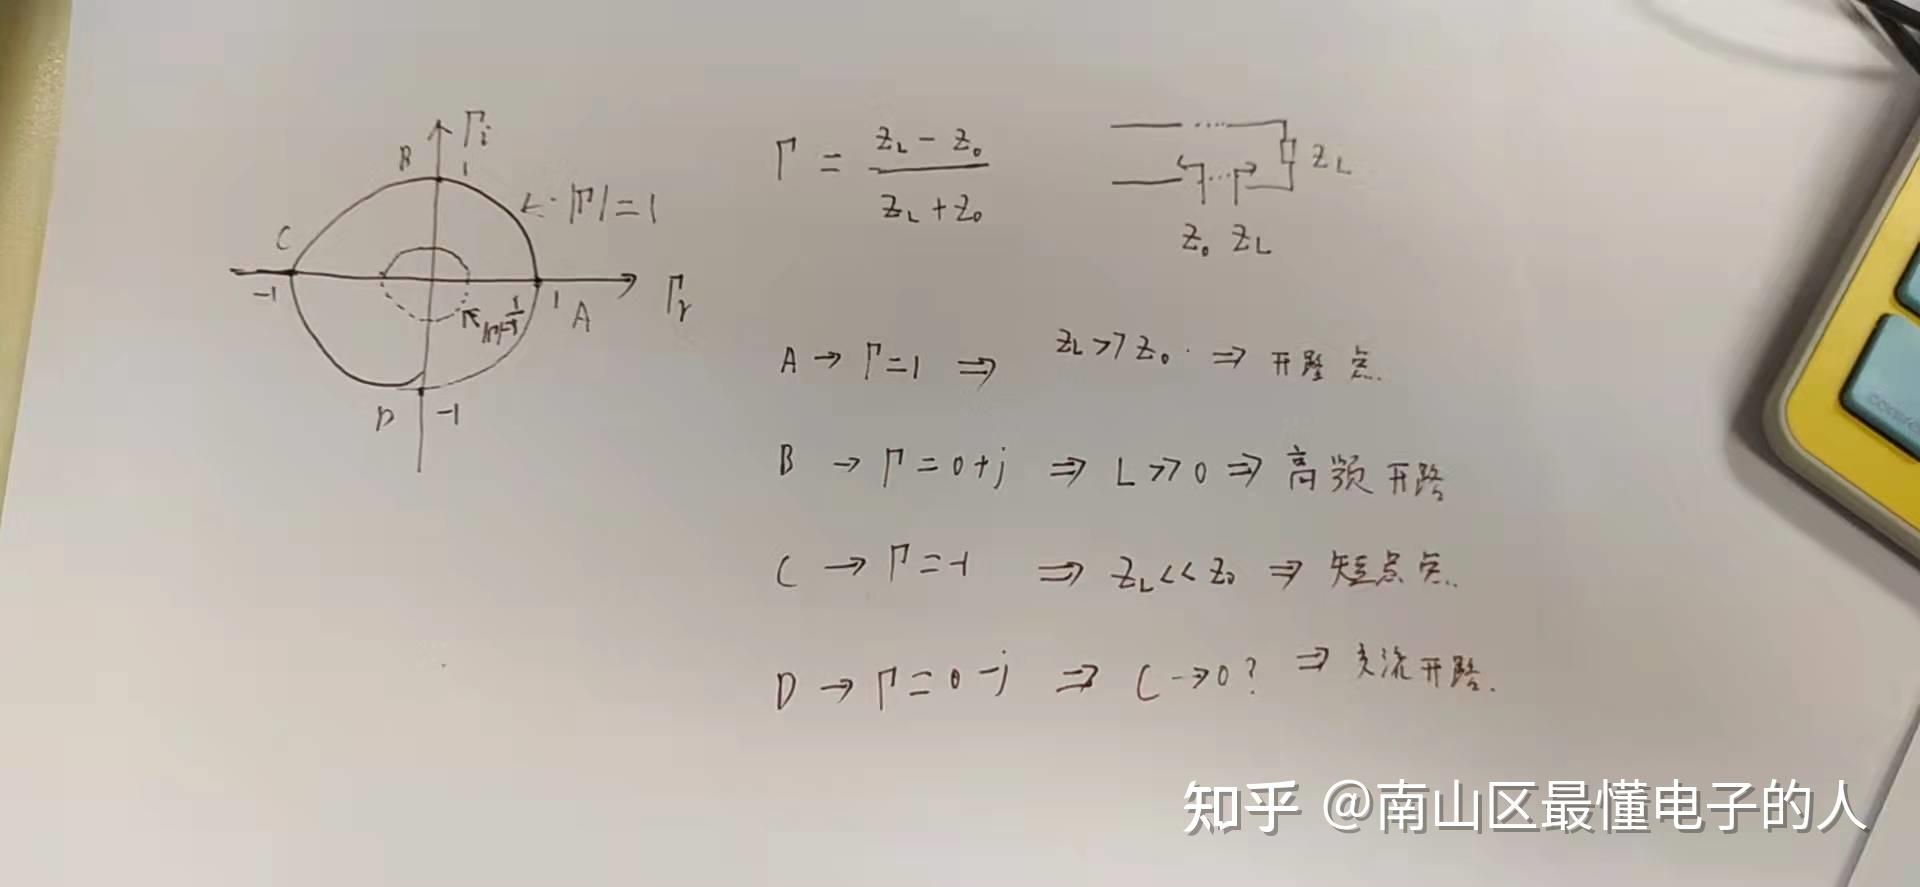 Γi
B 1
|Γ|=1
C
-1
1 A
Γr
D -1
Γ = (Z_L - Z_0) / (Z_L + Z_0)
Z_L
Z_0 Z_L
A → Γ=1 ⇒ Z_L >> Z_0 ⇒ 开路点.
B → Γ=0+j ⇒ L>>0 ⇒ 高频开路
C → Γ=-1 ⇒ Z_L << Z_0 ⇒ 短点点.
D → Γ=0-j ⇒ C→0? ⇒ 交流开路.
知乎 @南山区最懂电子的人